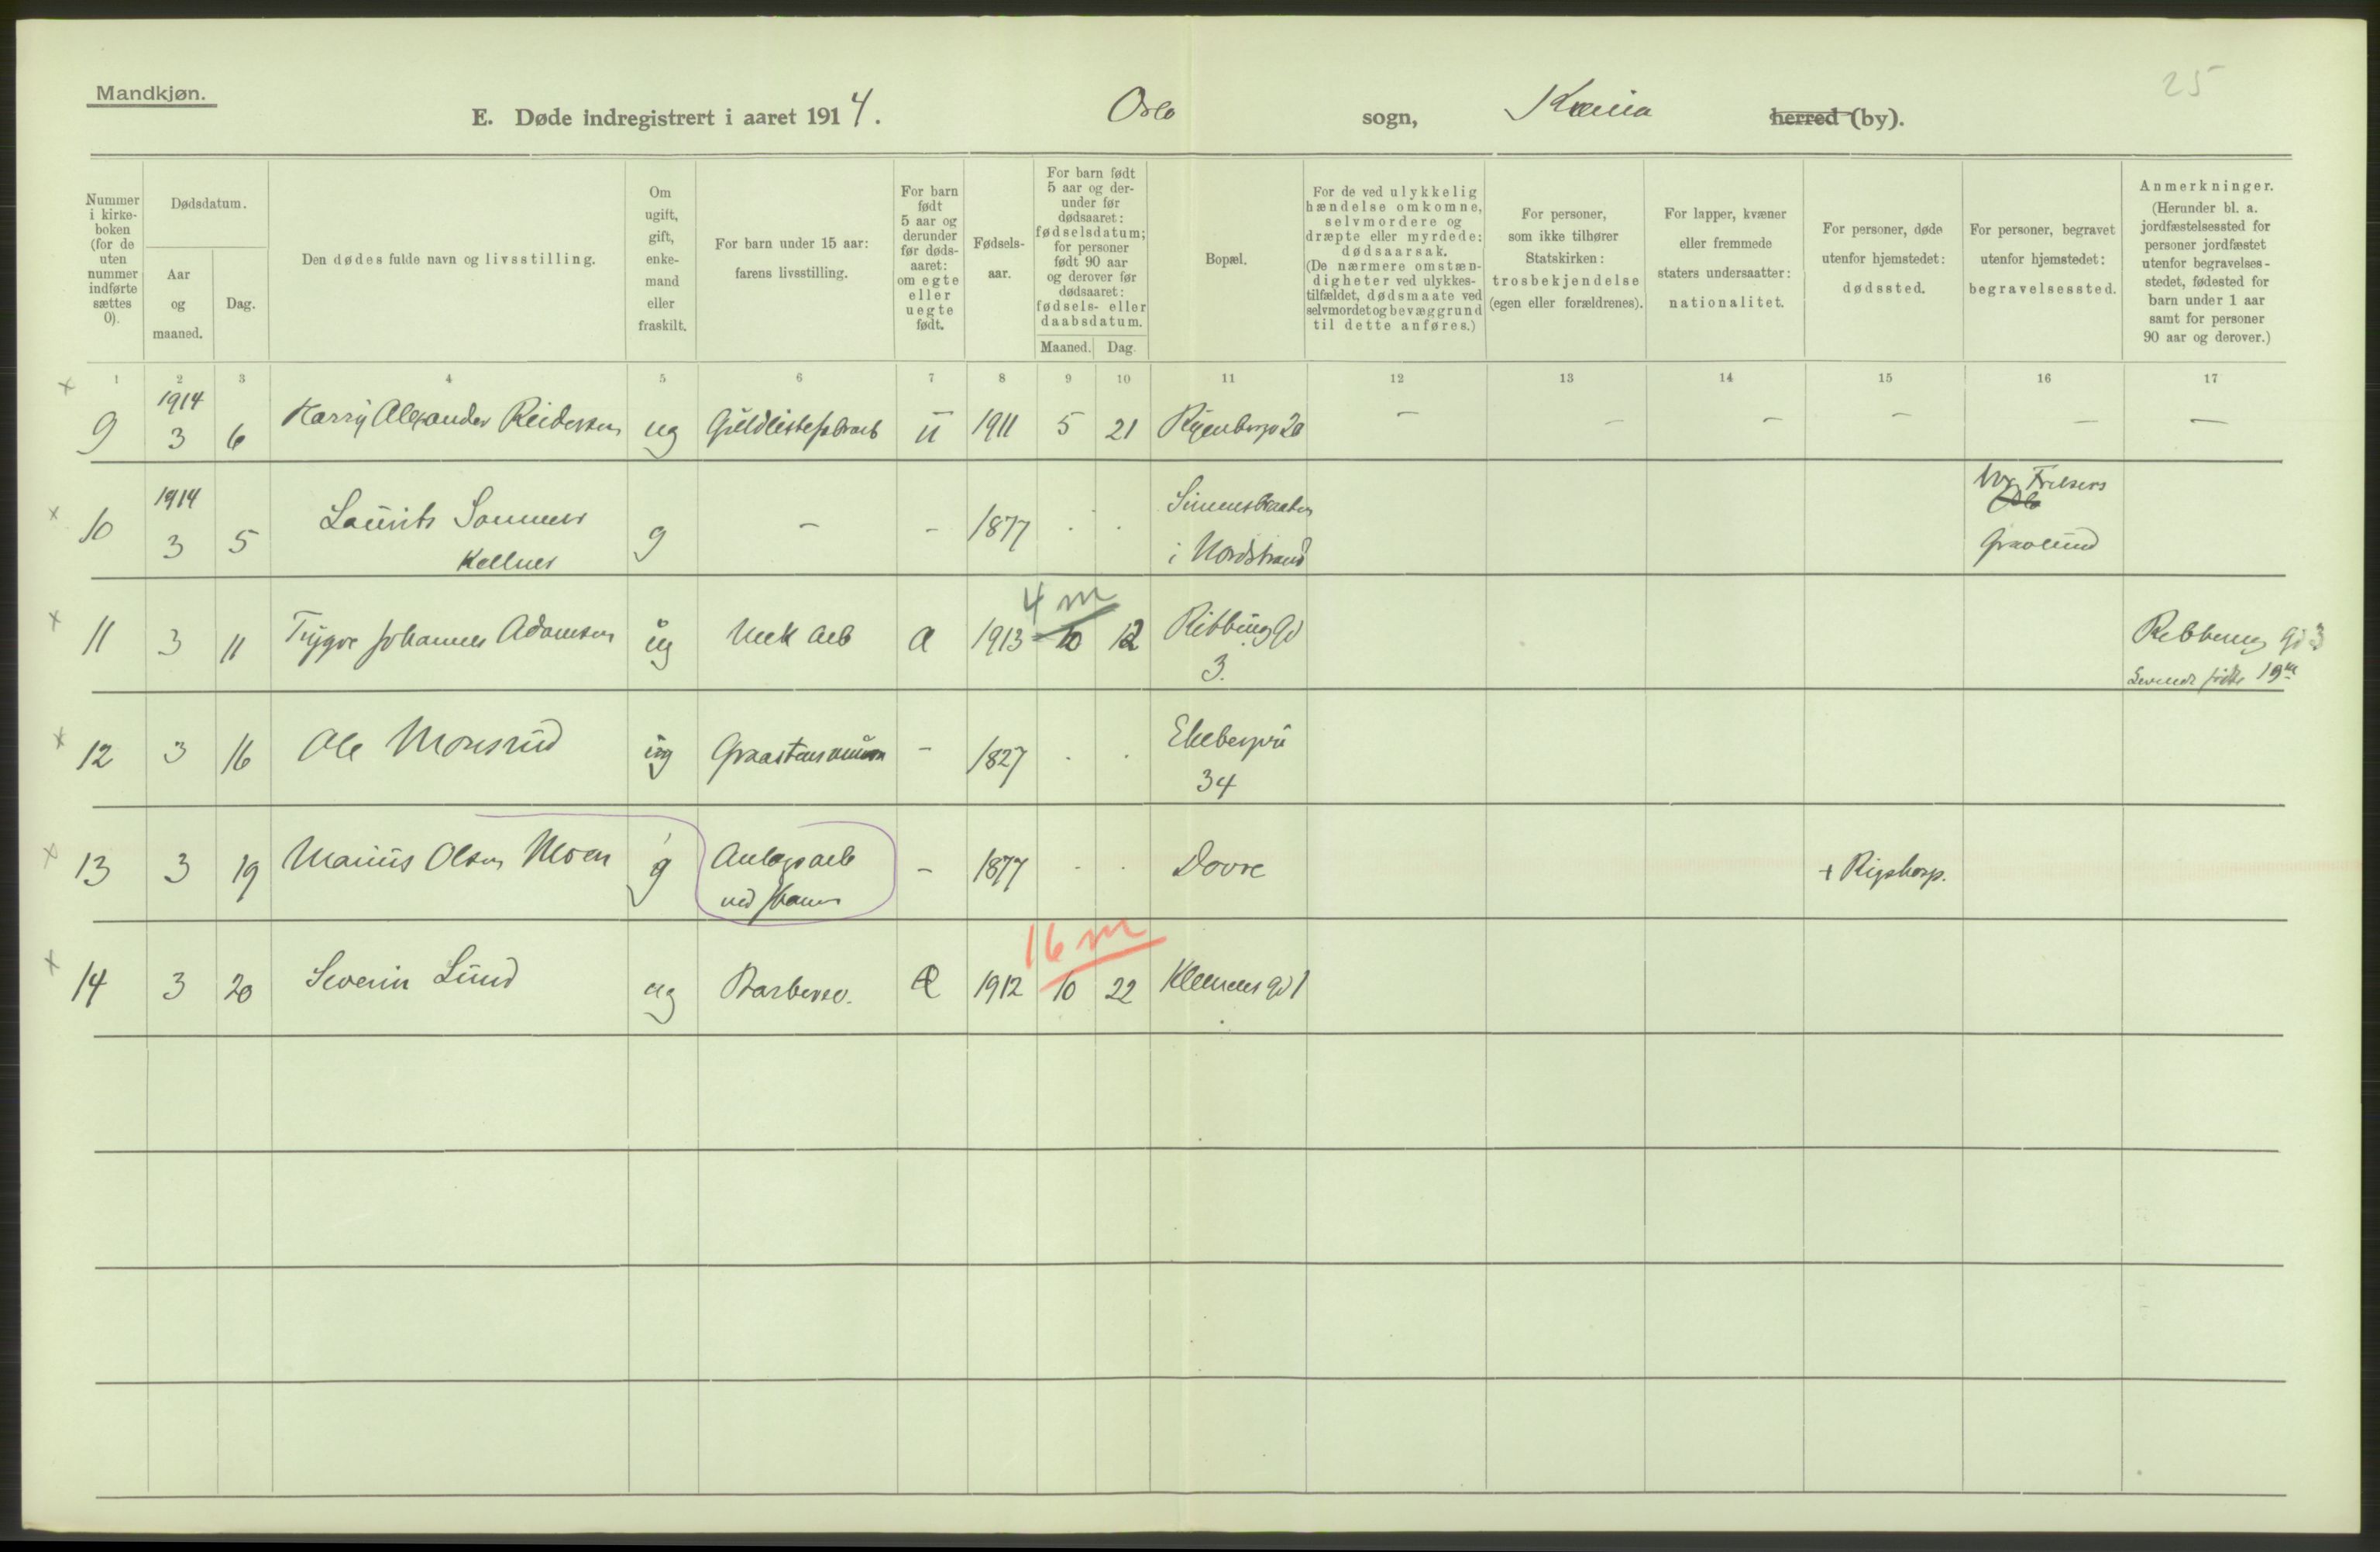 25
Mandkjøn.
E. Døde indregistrert i aaret 1914. Oslo sogn, Kr.ania herred (by).
Nummer i kirke-boken (for de uten nummer indførte sættes 0).
Dødsdatum.
Aar og maaned.
Dag.
Den dødes fulde navn og livsstilling.
Om ugift, gift, enke-mand eller fraskilt.
For barn under 15 aar: farens livsstilling.
For barn født 5 aar og derunder før døds-aaret: om egte eller uegte født.
Fødsels-aar.
For barn født 5 aar og der-under før dødsaaret: fødselsdatum; for personer født 90 aar og derover før dødsaaret: fødsels- eller daabsdatum.
Maaned. Dag.
Bopæl.
For de ved ulykkelig hændelse omkomne, selvmordere og dræpte eller myrdede: dødsaarsak. (De nærmere omstæn-digheter ved ulykkes-tilfældet, dødsmaate ved selvmordet og bevæggrund til dette anføres.)
For personer, som ikke tilhører Statskirken: trosbekjendelse (egen eller forældrenes).
For lapper, kvæner eller fremmede staters undersaatter: nationalitet.
For personer, døde utenfor hjemstedet: dødssted.
For personer, begravet utenfor hjemstedet: begravelsessted.
Anmerkninger. (Herunder bl. a. jordfæstelsessted for personer jordfæstet utenfor begravelses-stedet, fødested for barn under 1 aar samt for personer 90 aar og derover.)
1 2 3 4 5 6 7 8 9 10 11 12 13 14 15 16 17
x 9 1914 3 6 Harry Alexander Reidersen ug Guldlistefabrarb u 1911 5 21 Ryenbergv 20 — — — — — —
x 10 1914 3 5 Laurits Sommer g — - 1877 . . Simensbraaten
Kellner i Nordstrand
Vor Frelsers
Oslo
Gravlund
4 m
x 11 3 11 Trygve Johannes Adamsen ug Mek arb e 1913 10 12 Ribbung Gd 3. Ribbung Gd 3
19
x 12 3 16 Ole Monsrud ug Graastensmurer - 1827 . . Ekebergvei 34
x 13 3 19 Marius Olsen Moen g Anlægsarb - 1877 . . Dovre + Rigshosp.
ved
16 m
x 14 3 20 Severin Lund ug Barbersv. e 1912 10 22 Klemens Gd 1